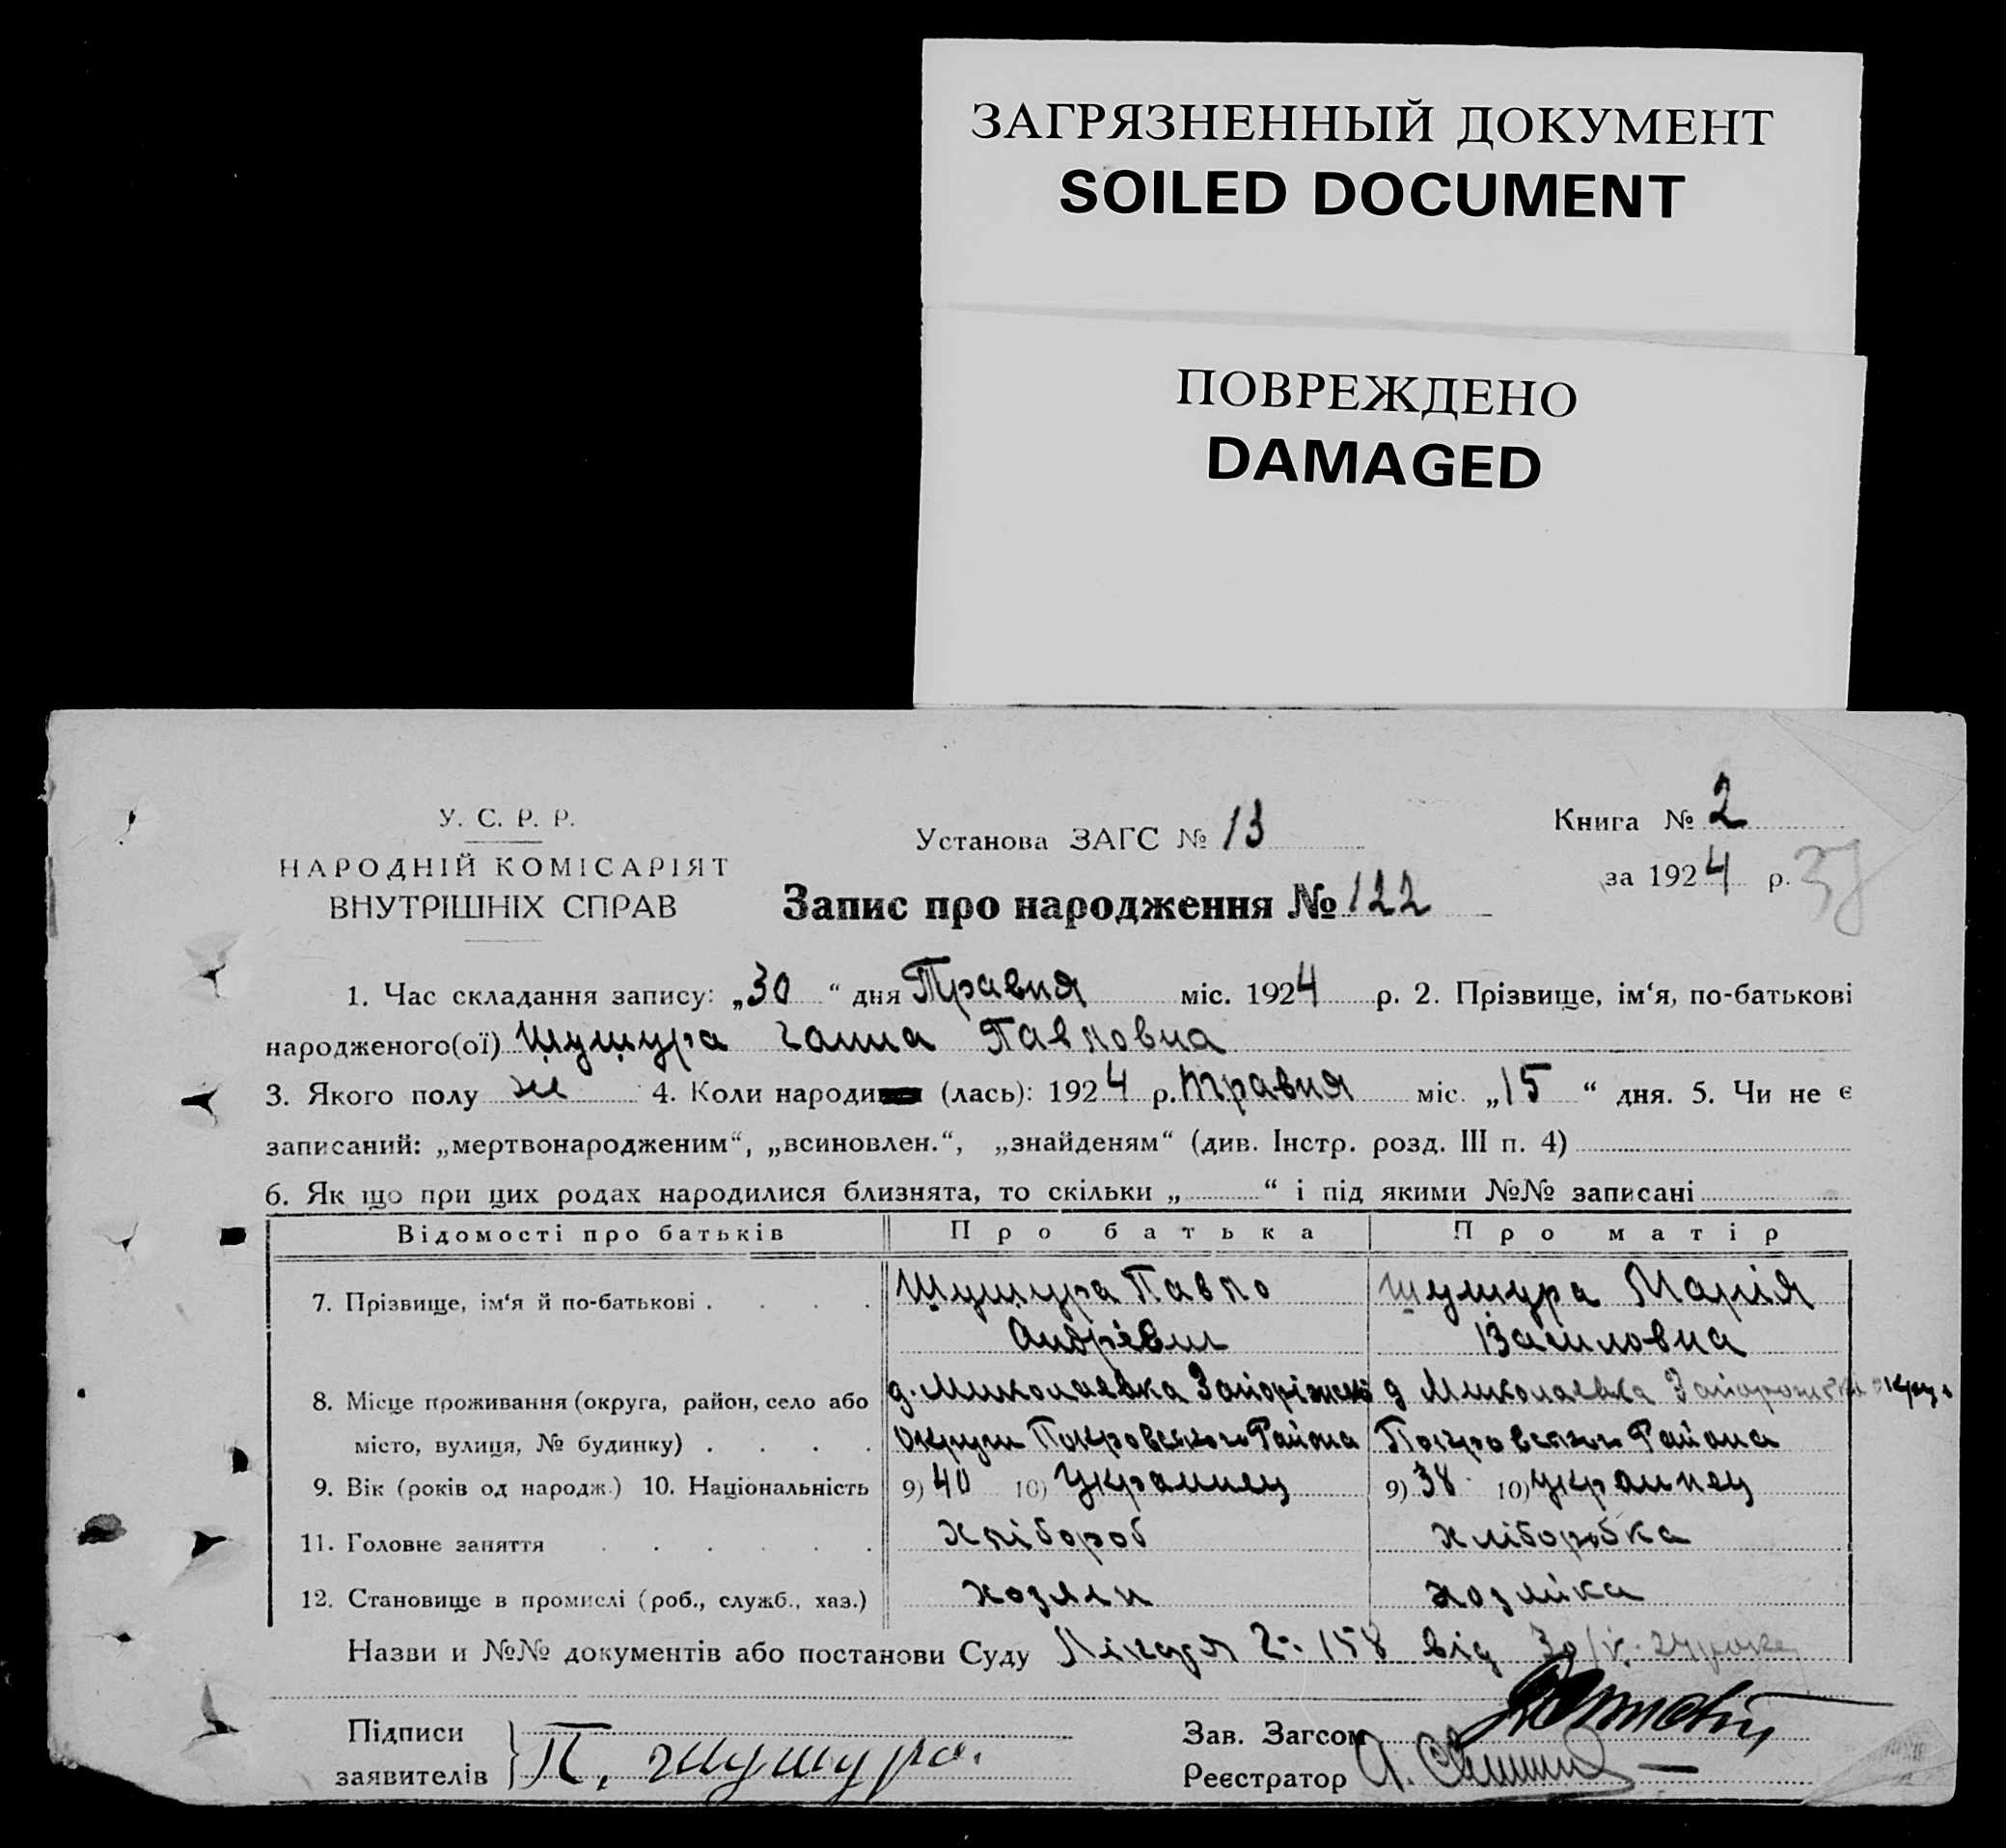 ЗАГРЯЗНЕННЫЙ ДОКУМЕНТ
SOILED DOCUMENT
ПОВРЕЖДЕНО
DAMAGED
У. С. Р. Р.
НАРОДНІЙ КОМІСАРІЯТ
ВНУТРІШНІХ СПРАВ
Установа ЗАГС № 13
Запис про народження № 122
Книга № 2
за 1924 р.
1. Час складання запису: „30“ дня Травня міс. 1924 р. 2. Прізвище, ім‘я, по-батькові
народженого(ої) Шушура Ганна Павловна
3. Якого полу ж 4. Коли народи (лась): 1924 р. травня міс. „15“ дня. 5. Чи не є
записаний: „мертвонародженим“, „всиновлен.“, „знайденям“ (див. Інстр. розд. III п. 4)
6. Як що при цих родах народилися близнята, то скільки „ “ і під якими №№ записані
Відомості про батьків Про батька Про матір
7. Прізвище, ім‘я й по-батькові . . . . Шушура Павло Шушура Марія
Андрієвич Василовна
8. Місце проживання (округа, район, село або д. Миколаевка Запоріжскої д Миколаевка Запорожска округа
місто, вулиця, № будинку) . . . . округи Покровського Района Покровського Района
9. Вік (років од народж.) 10. Національність 9) 40 10) Украинец 9) 38 10) Украинец
11. Головне заняття . . . . . . хлібороб хліборобка
12. Становище в промислі (роб., служб., хаз.) хозяин хозяйка
Назви и №№ документів або постанови Суду 158 від 30/V. 24 року
Підписи
заявителів П. Шушура.
Зав. Загсом
Реєстратор